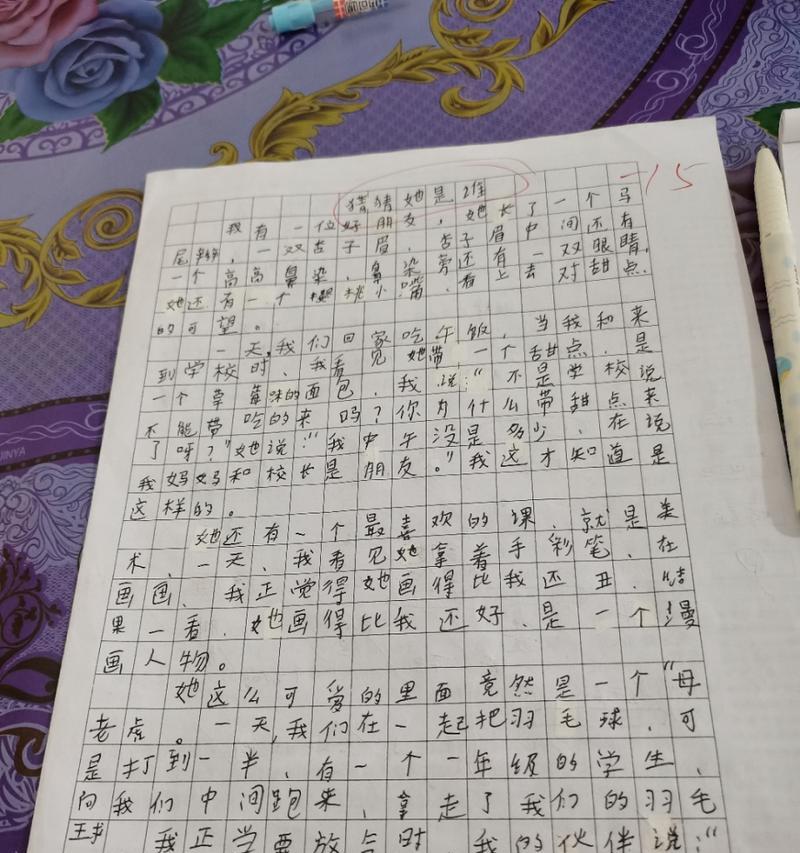 猜猜她是谁
-15
我有一位好朋友，她长了一个马
尾辫，一双苦子眉，苦子眉中间还有
一个高高鼻染，鼻染旁还有一双眼睛，
她还有一个樱桃小嘴，看上去对甜点
的可望。
一天，我们回家吃午饭，当我和来
到学校时，我看见她带一个甜点，是
一个草莓味的面包，我说：“不是学校说
不能带吃的来吗？你为什么带甜点来
了呀？”她说：“我中午没是多少，在说
我妈妈和校长是朋友。”我这才知道是
这样的。
她还有一个最喜欢的课，就是美
术，一天，我看见她拿着手彩笔，在
画画，我正觉得她画得比我还丑，结
果一看，她画得比我还好，是一个漫
画人物。
她这么可爱的里面竟然是一个“母
老虎。一天，我们在一起把羽毛球，可
是打到一半，有一个一年级的学生，
向我们中间跑来，拿走了我们的羽毛
球
我正学要放弃时，我的伙伴说：“